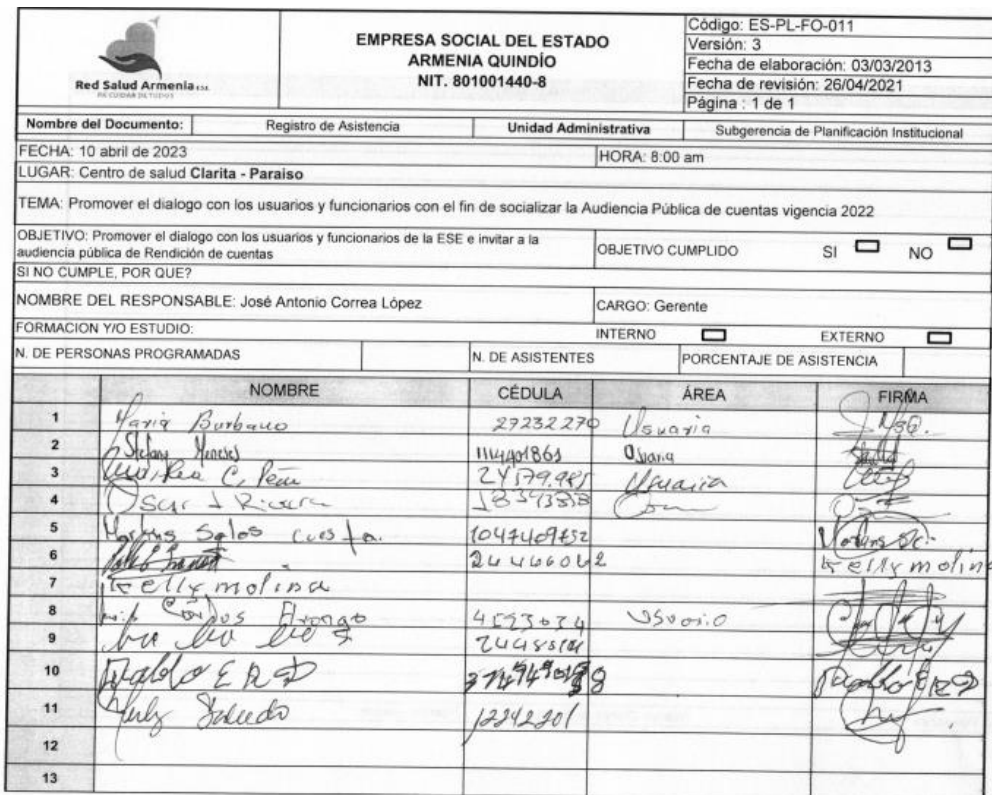 Red Salud Armenia E.S.E.
EMPRESA SOCIAL DEL ESTADO
ARMENIA QUINDÍO
NIT. 801001440-8
Código: ES-PL-FO-011
Versión: 3
Fecha de elaboración: 03/03/2013
Fecha de revisión: 26/04/2021
Página : 1 de 1
Nombre del Documento: Registro de Asistencia Unidad Administrativa Subgerencia de Planificación Institucional
FECHA: 10 abril de 2023 HORA: 8:00 am
LUGAR: Centro de salud Clarita - Paraiso
TEMA: Promover el dialogo con los usuarios y funcionarios con el fin de socializar la Audiencia Pública de cuentas vigencia 2022
OBJETIVO: Promover el dialogo con los usuarios y funcionarios de la ESE e invitar a la
audiencia pública de Rendición de cuentas
OBJETIVO CUMPLIDO SI NO
SI NO CUMPLE, POR QUE?
NOMBRE DEL RESPONSABLE: José Antonio Correa López CARGO: Gerente
FORMACION Y/O ESTUDIO: INTERNO EXTERNO
N. DE PERSONAS PROGRAMADAS N. DE ASISTENTES PORCENTAJE DE ASISTENCIA
NOMBRE CÉDULA ÁREA FIRMA
1 Maria Burbano 27232270 Usuaria
2 Stefany Meneses Usuaria
3 C. Usuaria
4 Oscar J Rivera
5 Salos Cuesta 1047469752
6 24466062
7 Kelly molina Kelly molina
8 4593034 Usuario
9
10
11 Salcedo 12242201
12
13